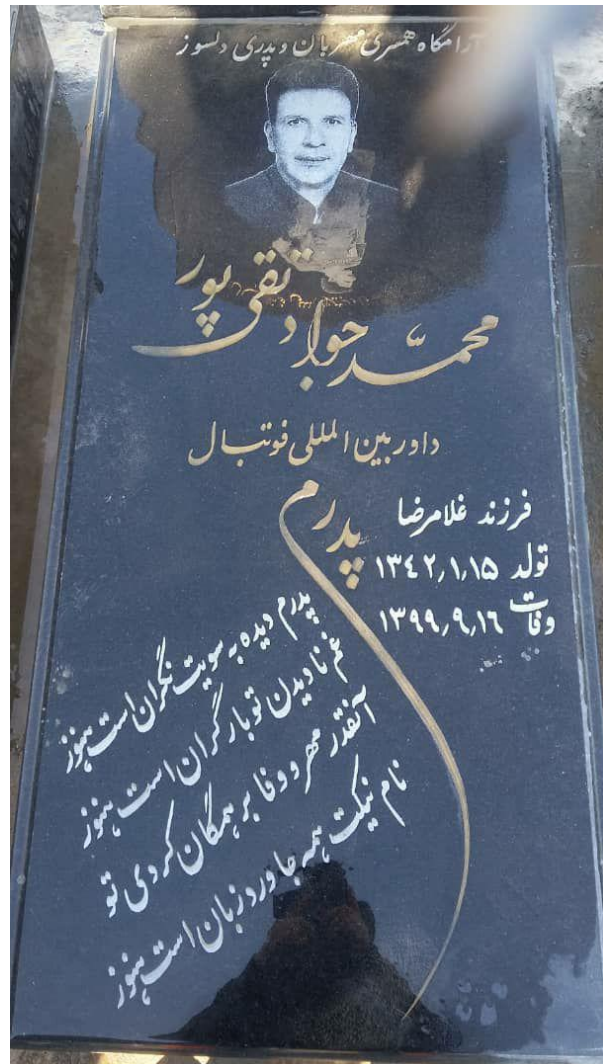 آرامگاه همسری مهربان و پدری دلسوز
محمّد جواد تقی پور
داور بین المللی فوتبال
فرزند غلامرضا
تولد ۱۳۴۲٫۱٫۱۵
وفات ۱۳۹۹٫۹٫۱۶
پدرم
پدرم دیده به سویت نگران است هنوز
غم نادیدن تو بار گران است هنوز
آنقدر مهر و وفا بر همگان کردی تو
نام نیکت همه جا ورد زبان است هنوز